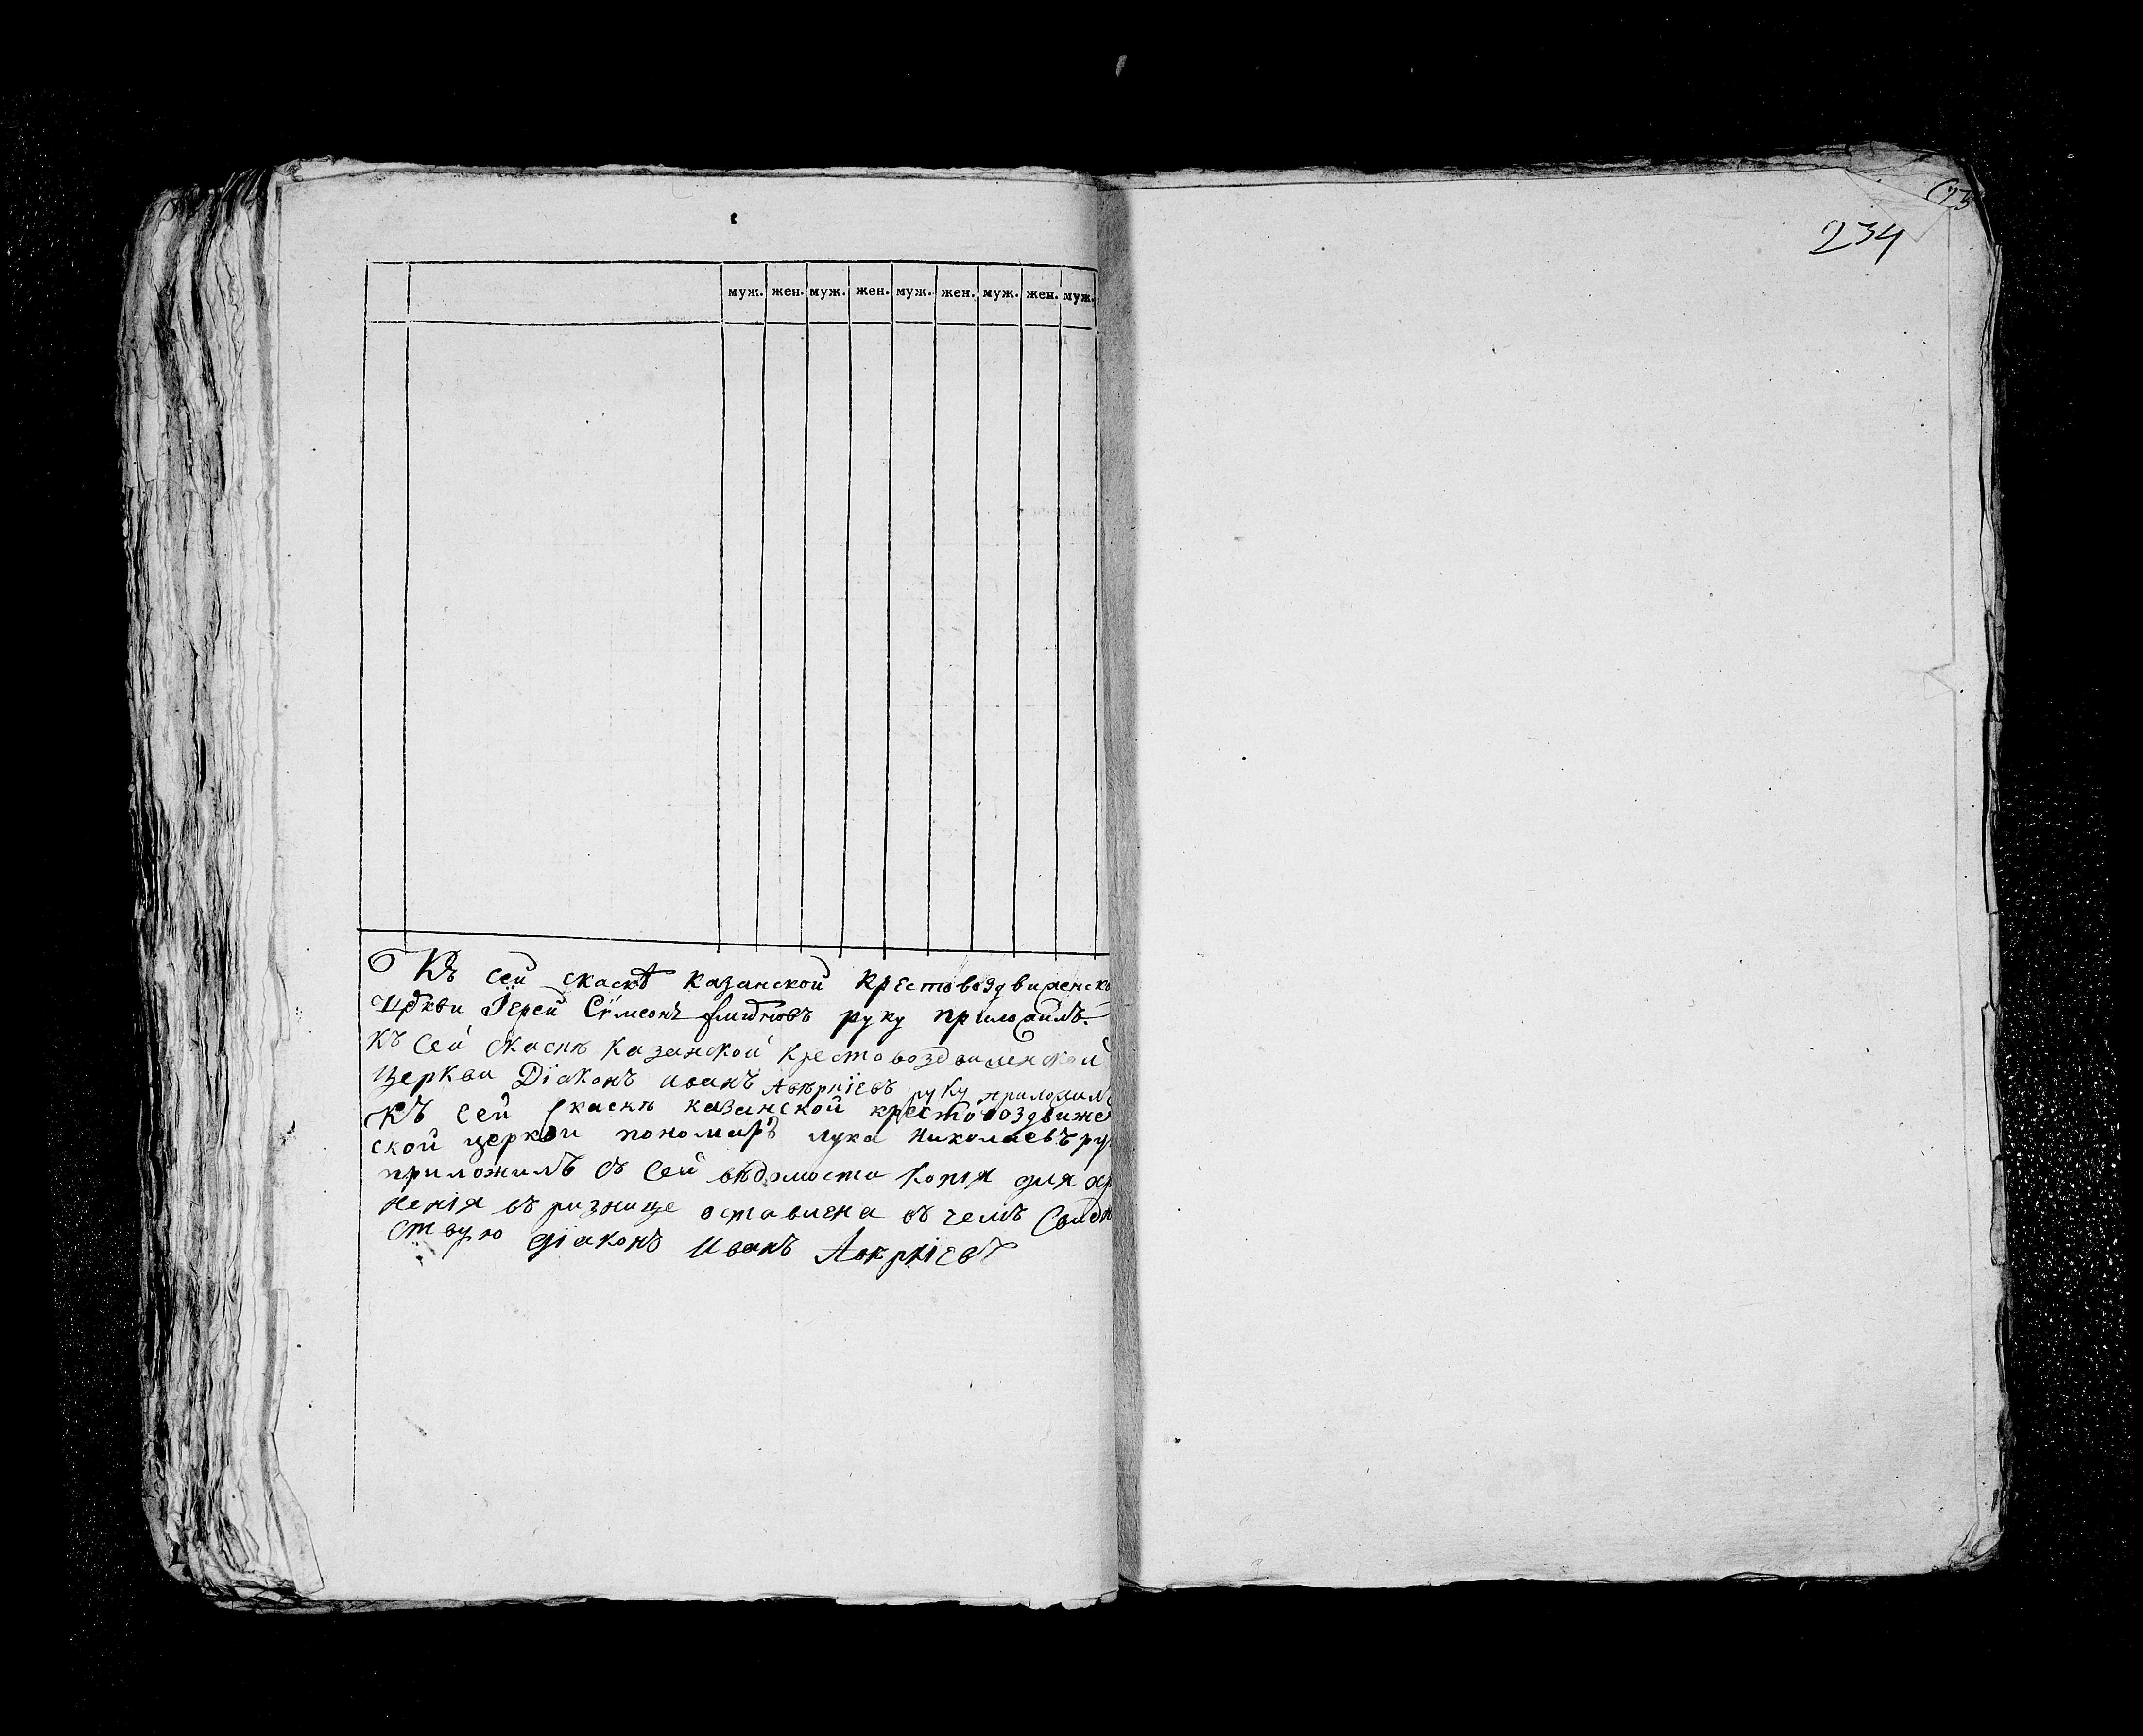 муж. жен. муж. жен. муж. жен. муж. жен. муж.
Къ сей скаскѣ казанской крестовоздвиженско
Церкви Їерей Сѵмеонъ руку приложилъ.
къ сей скаскѣ казанской крестовоздвиженской
церкви Діаконъ иванъ Авѣркіевъ руку приложилъ
Къ сей скаскѣ казанской крестовоздвижен
ской церкви пономарь лука николаевъ ру
приложилъ съ сей вѣдомости копія для хр
ненія въ ризнице оставлена въ чемъ свидѣ
ствую діаконъ иванъ Авѣркіевъ
234